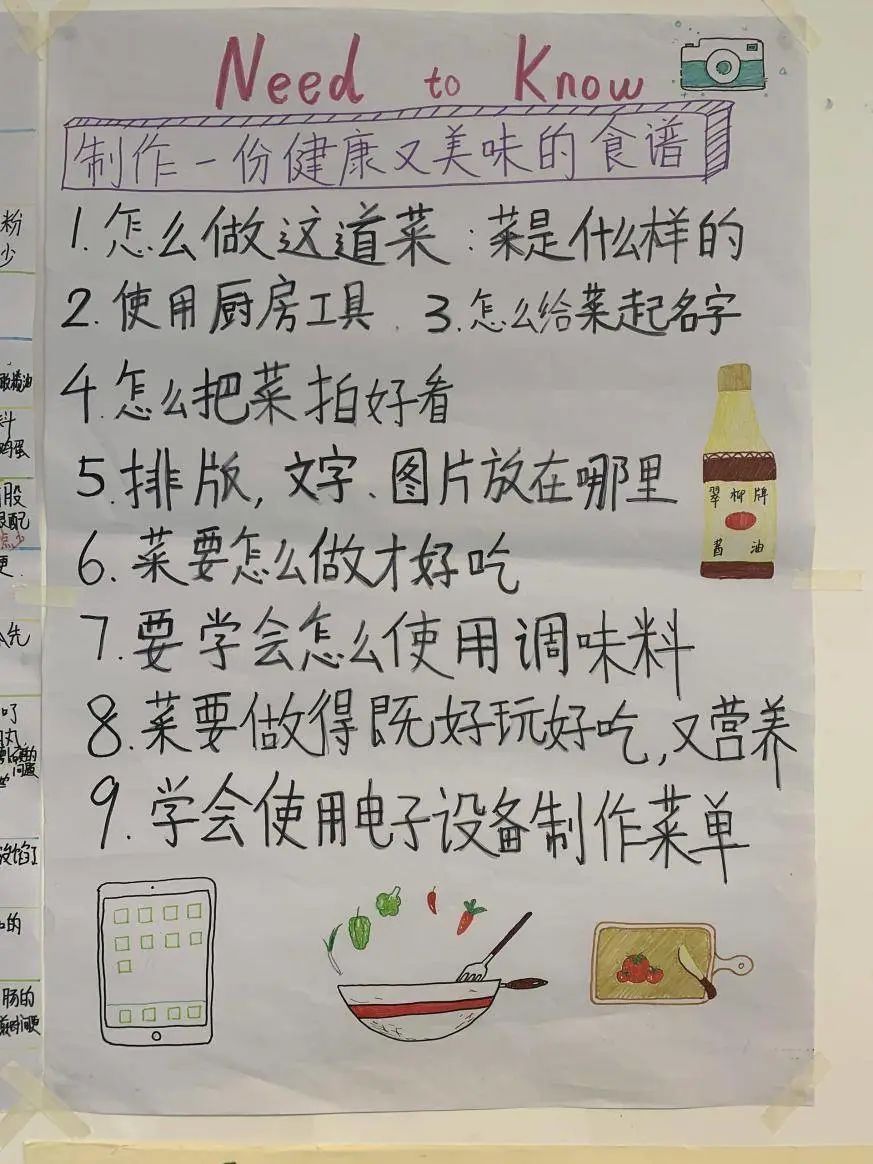 Need to Know
制作一份健康又美味的食谱
1.怎么做这道菜：菜是什么样的
2.使用厨房工具.3.怎么给菜起名字
4.怎么把菜拍好看
5.排版,文字、图片放在哪里
6.菜要怎么做才好吃
7.要学会怎么使用调味料
8.菜要做得既好玩好吃,又营养
9.学会使用电子设备制作菜单
翠柳牌
酱油
粉
少
橄榄油
料
鸡蛋
股
点少
更.
先
的
肠的